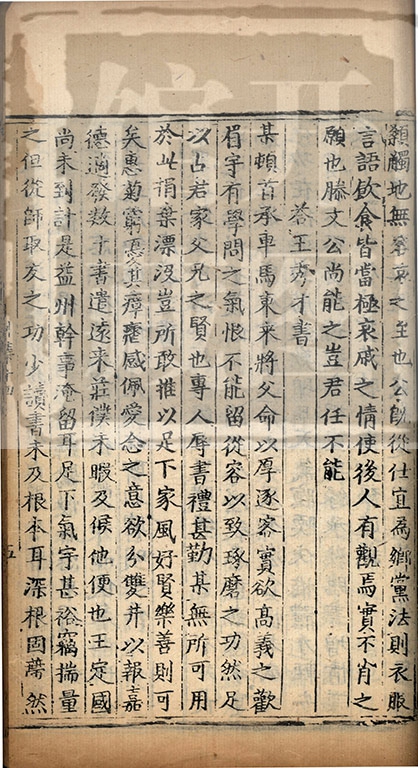 顙觸地無容哀之至也公既從仕宜為鄉黨法則衣服
言語飲食皆當極哀戚之情使後人有觀焉實不肖之
願也滕文公尚能之豈君任不能
答王秀才書
某頓首承車馬東来將父命以厚逐客實欽高義之歡
眉宇有學問之氣恨不能留從容以致琢磨之功然足
以占君家父兄之賢也專人辱書禮甚勤某無所可用
於此捐棄漂没豈所敢推以足下家風好賢樂善則可
矣惠菊藭患其瘴癘感佩愛念之意欲分雙井以報嘉
德適發数十書遣遠来莊僕未暇及候他便也王定國
尚未到計是益州幹事淹留耳足下氣宇甚裕竊揣量
之但從師取友之功少讀書未及根本耳深根固蔕然